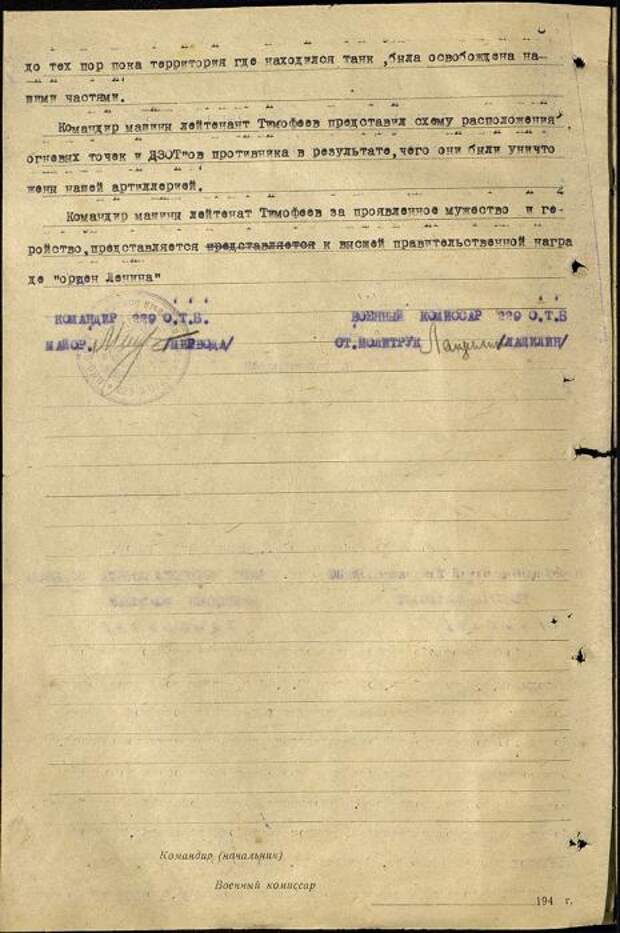 до тех пор пока территория где находился танк ,была освобождена на-
шими частями.
Командир машины лейтенант Тимофеев представил схему расположения
огневых точек и ДЗОТ"ов противника в результате,чего они были уничто
жены нашей артиллерией.
Командир машины лейтенат Тимофеев за проявленное мужество и ге-
ройство,представляется представляется к высшей правительственной награ
де "орден Ленина"
КОМАНДИР 229 О.Т.Б. ВОЕННЫЙ КОМИССАР 229 О.Т.Б
МАЙОР. СТ.ПОЛИТРУК /ЛАПИЛИН/
Командир (начальник)
Военный комиссар
194 г.